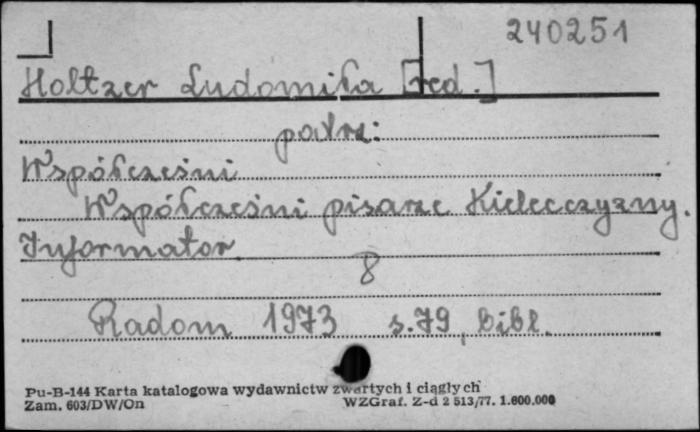 240251
Holtzer Ludomiła [red.]
patrz:
Współcześni
Współcześni pisarze Kielecczyzny.
Informator.
8
Radom 1973 s. 79, bibl.
Pu-B-144 Karta katalogowa wydawnictw zwartych i ciągłych
Zam. 603/DW/On WZGraf. Z-d 2 513/77. 1.600.000